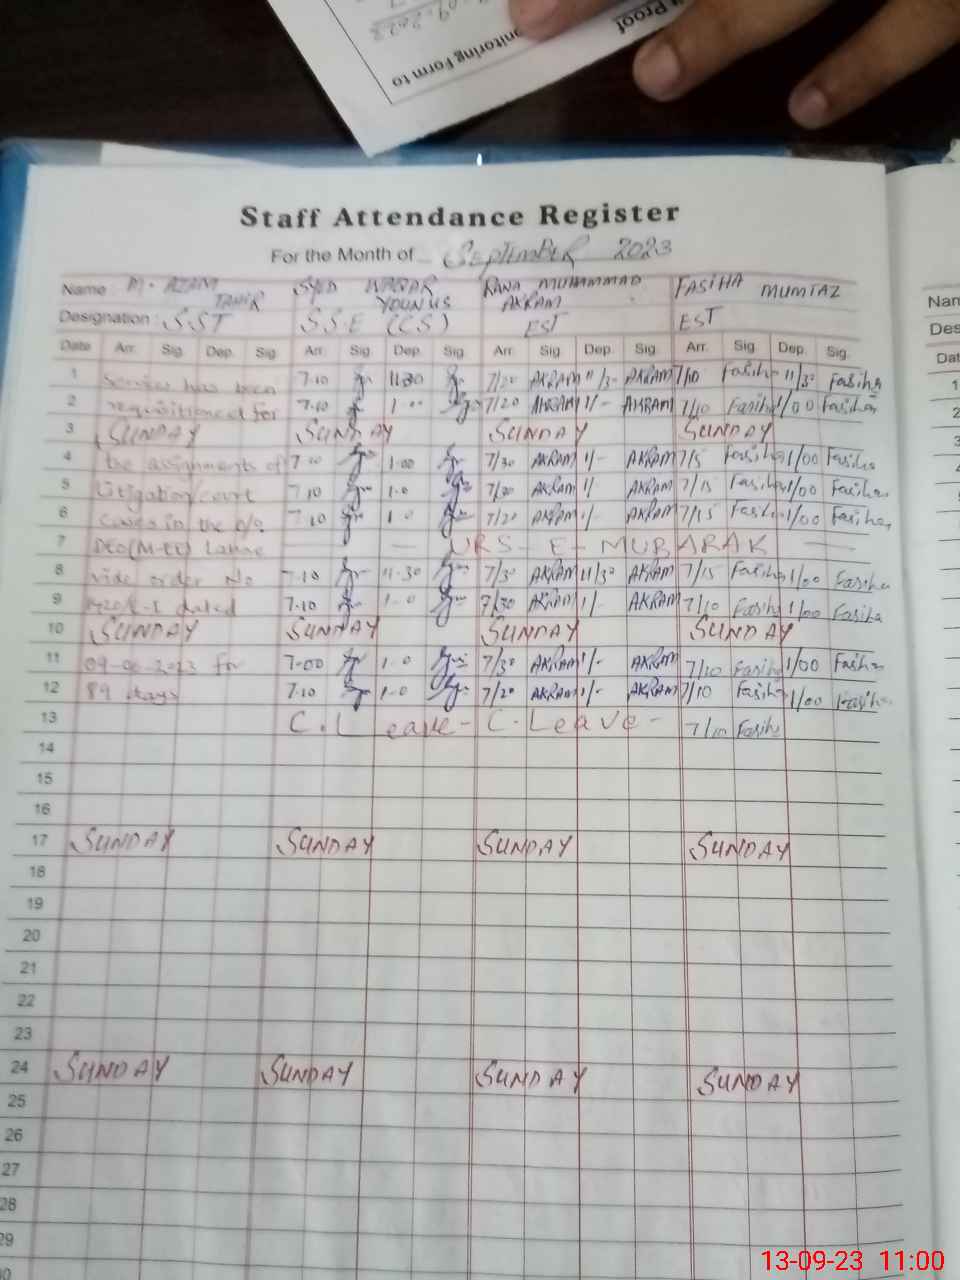 Proof
nitoring Form to
Staff Attendance Register
For the Month of SEPTEMBER 2023
Name: M. AZAM TAHIR SYED WAQAR YOUNUS RANA MUHAMMAD AKRAM FASIHA MUMTAZ
Designation: S.ST S.S.E (CS) EST EST
Date Arr. Sig. Dep. Sig. Arr. Sig. Dep. Sig. Arr. Sig. Dep. Sig. Arr. Sig. Dep. Sig.
1 Services has been 7.10 11.30 7/20 AKRAM 11/30 AKRAM 7/10 Fasiha 11/30 Fasiha
2 requisitioned for 7.10 1.00 7/20 AKRAM 1/- AKRAM 7/10 Fasiha 1/00 Fasiha
3 SUNDAY SUNDAY SUNDAY SUNDAY
4 the assignments of 1.00 7/30 AKRAM 1/- AKRAM 7/5 Fasiha 1/00 Fasiha
5 Litigation/court 7.10 1.0 7/20 AKRAM 1/- AKRAM 7/15 Fasiha 1/00 Fasiha
6 cases in the o/o 7.10 1.0 7/20 AKRAM 1/- AKRAM 7/15 Fasiha 1/00 Fasiha
7 DEO(M-EE) Lahore — URS-E-MUBARAK —
8 vide order No 7.10 11.30 7/30 AKRAM 11/30 AKRAM 7/15 Fasiha 1/00 Fasiha
9 dated 7.10 1.0 7/30 AKRAM 1/- AKRAM 7/10 Fasiha 1/00 Fasiha
10 SUNDAY SUNDAY SUNDAY SUNDAY
11 for 7.00 1.0 7/30 AKRAM 1/- AKRAM 7/10 Fasiha 1/00 Fasiha
12 89 days 7.10 1.0 7/20 AKRAM 1/- AKRAM 7/10 Fasiha 1/00 Fasiha
13 C. Leave - C. Leave - 7/10 Fasiha
14
15
16
17 SUNDAY SUNDAY SUNDAY SUNDAY
18
19
20
21
22
23
24 SUNDAY SUNDAY SUNDAY SUNDAY
25
26
27
28
29
Nam
Des
Dat
1
2
3
13-09-23 11:00